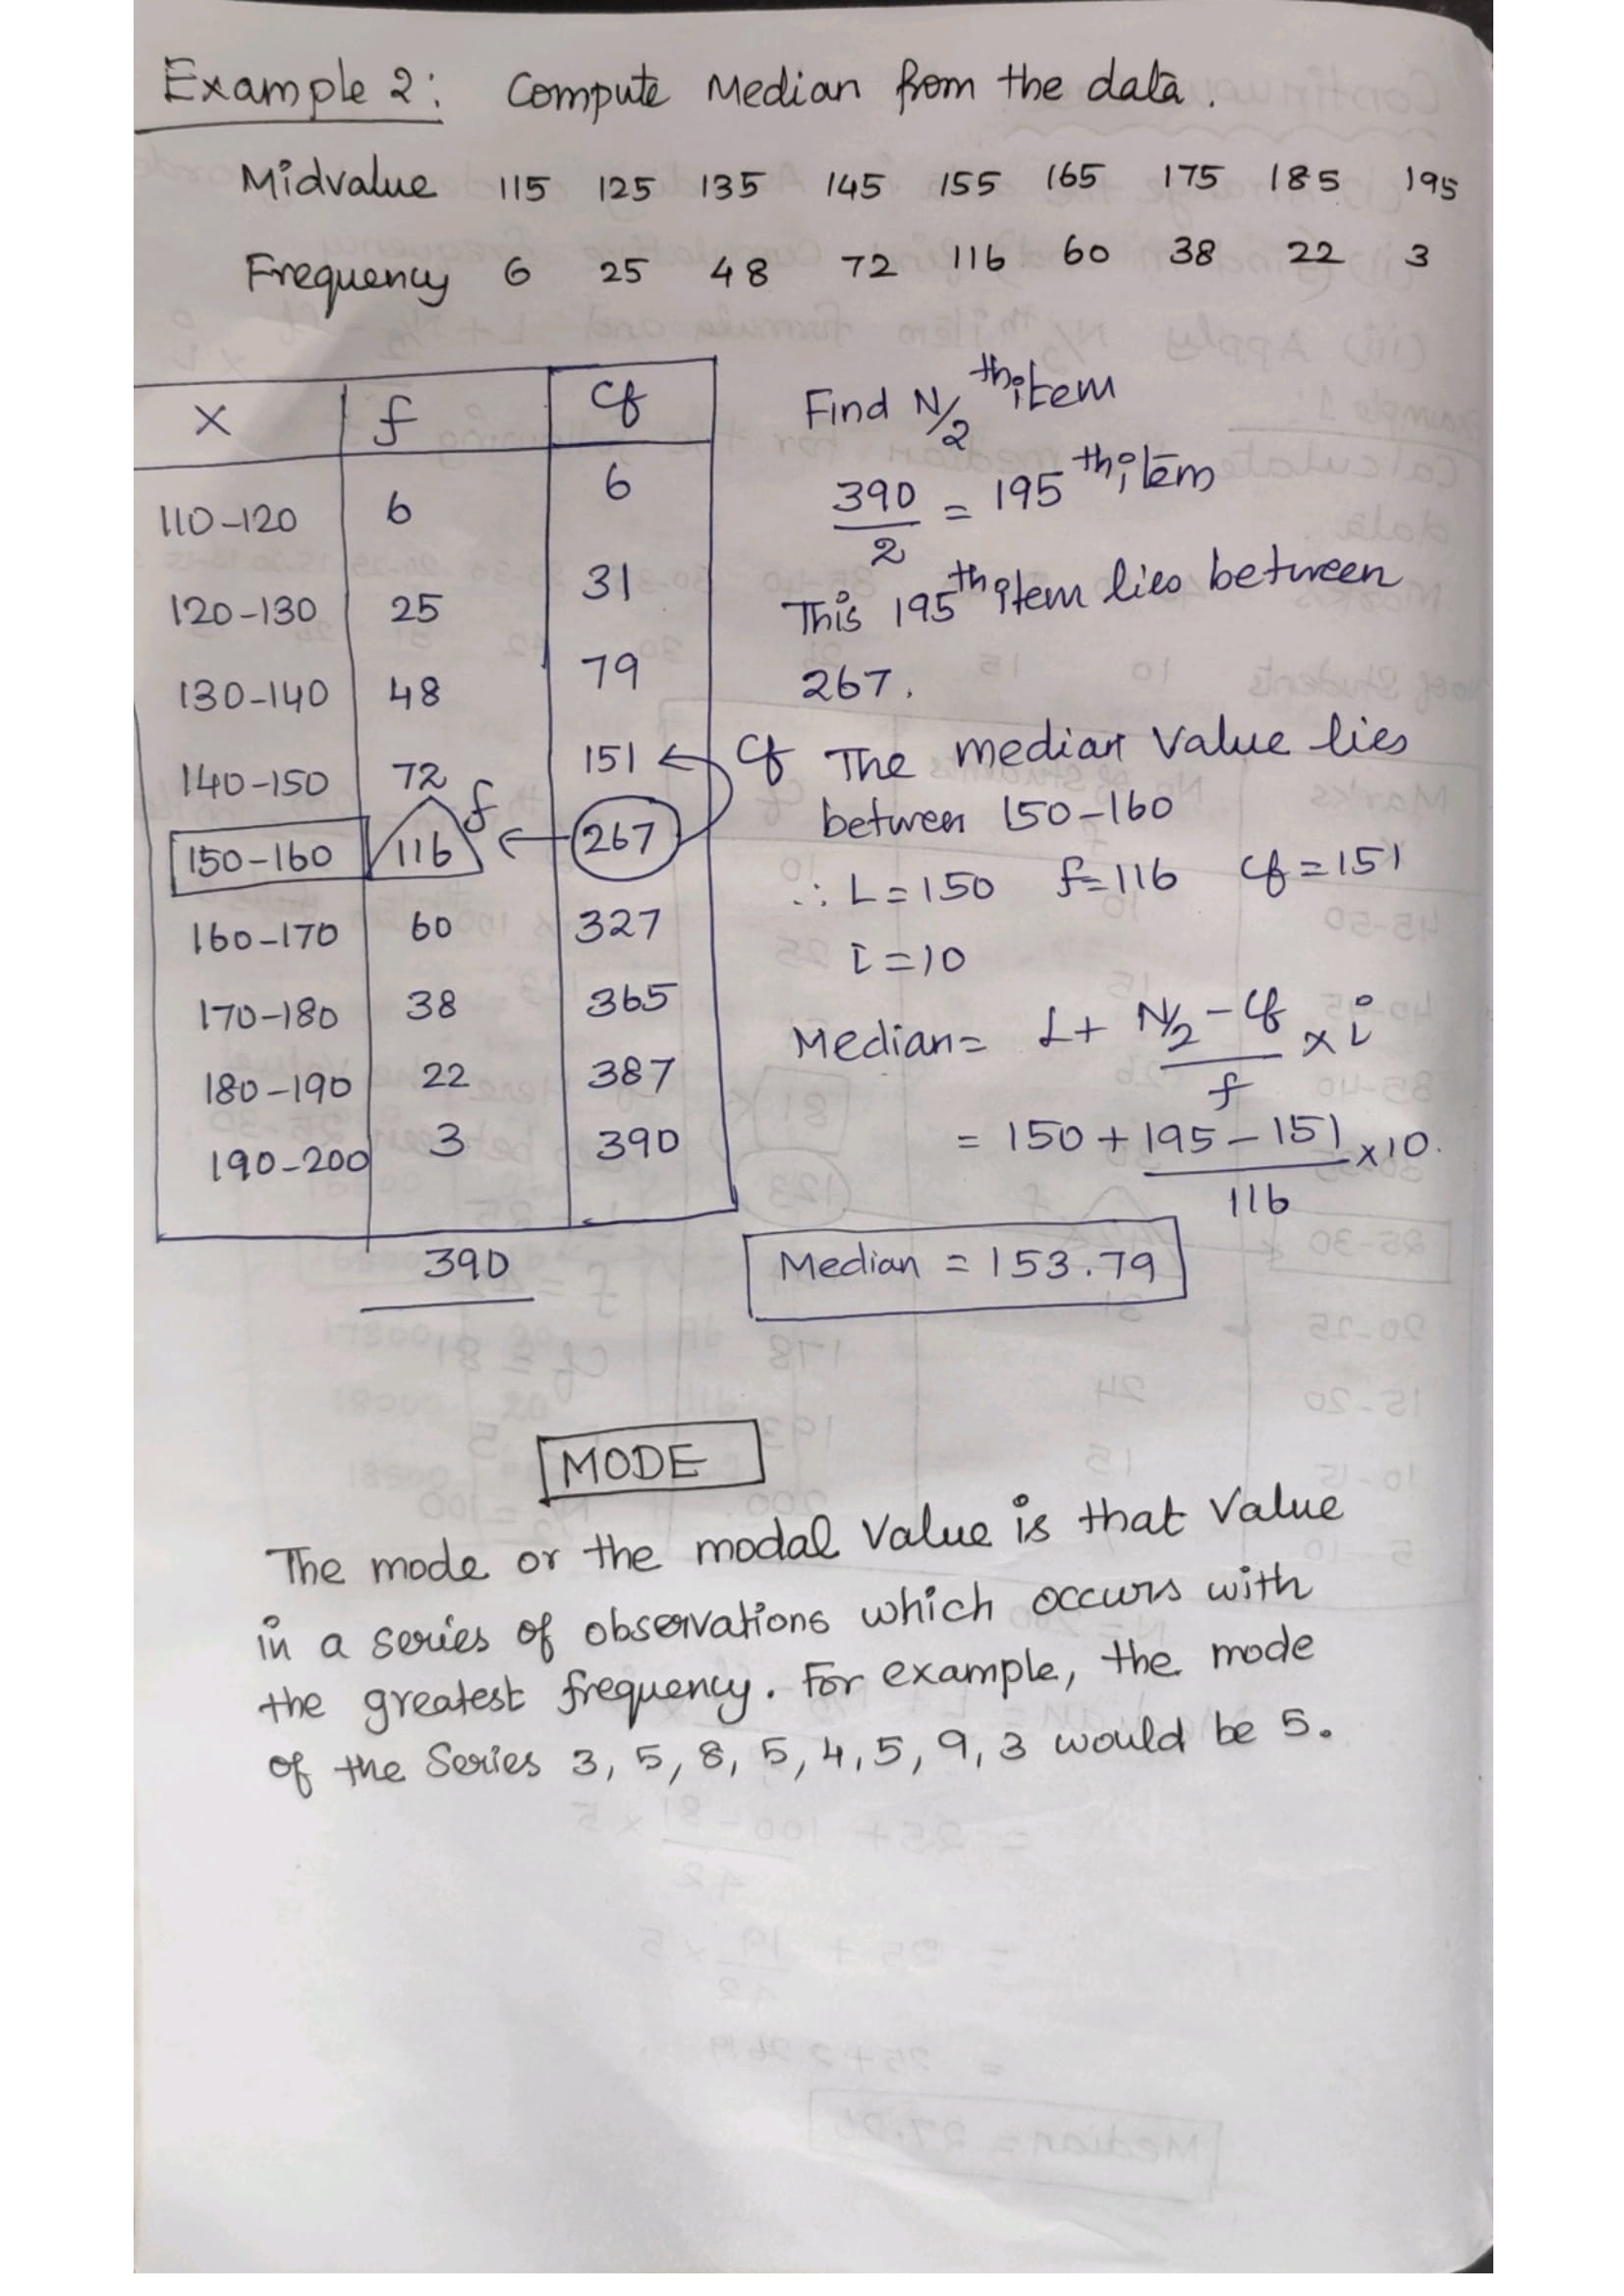 Example 2: Compute Median from the data.
Midvalue 115 125 135 145 155 165 175 185 195
Frequency 6 25 48 72 116 60 38 22 3
X f cf
110-120 6 6
120-130 25 31
130-140 48 79
140-150 72 151 cf
150-160 116 f 267
160-170 60 327
170-180 38 365
180-190 22 387
190-200 3 390
390
Find N/2 th item
390/2 = 195 th item
This 195 th item lies between
267.
The median Value lies
between 150-160
∴ L=150 f=116 cf=151
i=10
Median= L+ N/2-cf/f × i
= 150+195-151/116 ×10.
Median = 153.79
MODE
The mode or the modal Value is that Value
in a series of observations which occurs with
the greatest frequency. For example, the mode
of the Series 3, 5, 8, 5, 4, 5, 9, 3 would be 5.